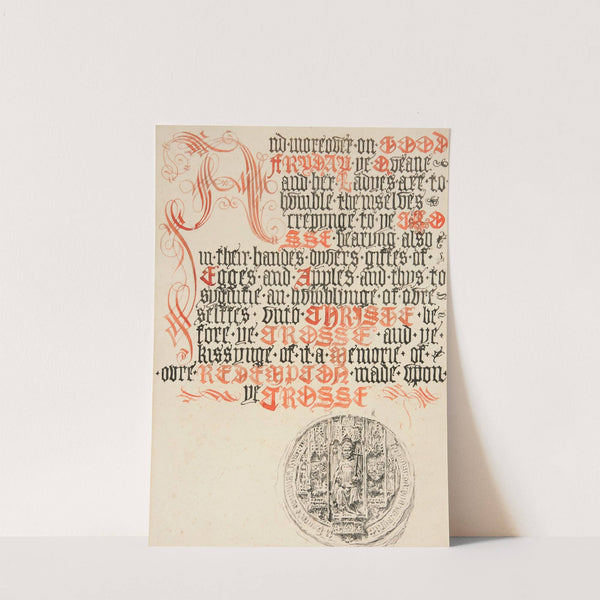 And·moreover·on·GOOD
FRYDAY·ye·Queane
and·her·Ladyes·are·to
homble·themselves
crepynge·to·ye·CRO
SSE·bearing·also
in·their·handes·dyvers·giftes·of
Egges·and·Apples·and·thys·to
sygnifie·an·homblynge·of·ovre
selfes·vnto·CHRISTE·be
fore·ye·CROSSE·and·ye
kissynge·of·it·a·Memorie·of·
·ovre·REDEMPTON·made·vpon·
ye·CROSSE